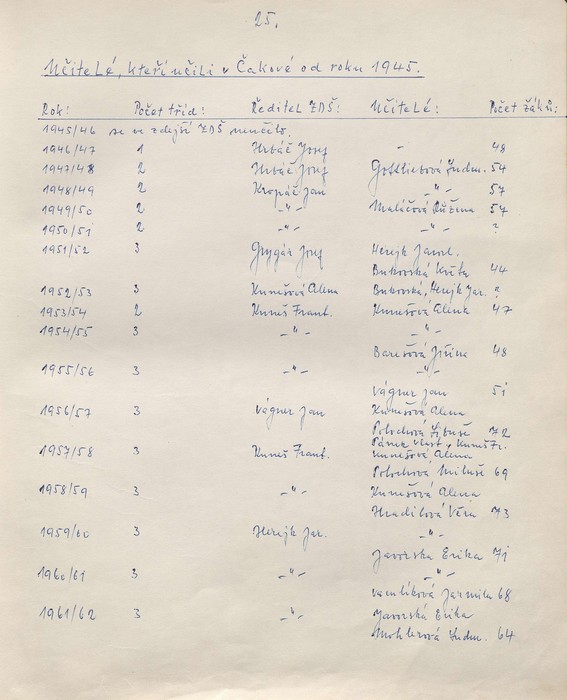 25.
Učitelé, kteří učili v Čakové od roku 1945.
Rok: Počet tříd: Ředitel ZDŠ: Učitelé: Počet žáků:
1945/46 se ve zdejší ZDŠ neučilo.
1946/47 1 Hrbáč Josef - 48
1947/48 2 Hrbáč Josef Gottliebová Ludm. 54
1948/49 2 Kropáč Jan -"- 57
1949/50 2 -"- Maláčová Růžena 57
1950/51 2 -"- -"- ?
1951/52 3 Grygar Josef Herejk Jarosl.
Bukovská Květa 44
1952/53 3 Kunešová Alena Bukovská, Herejk Jar. ?
1953/54 2 Kuneš Frant. Kunešová Alena 47
1954/55 3 -"- -"-
Barešová Jiřina 48
1955/56 3 -"- -"-
Vágner Jan 51
1956/57 3 Vágner Jan Kunešová Alena
Libuše 72
Pánek Vlast. Kuneš Fr.
1957/58 3 Kuneš Frant. Kunešová Alena
69
1958/59 3 -"- Kunešová Alena
Hradilová Věra 73
1959/60 3 Herejk Jar. -"-
Javorská Erika 71
1960/61 3 -"- -"-
Jarmila 68
1961/62 3 -"- Javorská Erika
Ludm. 64